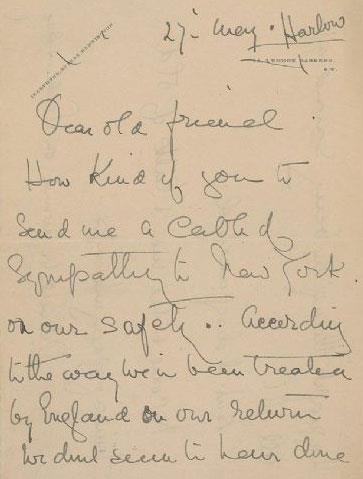 27- May. Harlow
TELEPHONE KENSINGTON
LENNOX GARDENS
S.W.
Dear old friend.
How kind of you to
send me a Cable of
Sympathy to New York.
on our safety.. According
to the way we'v been treated
by England on our return
we dont seem to have done